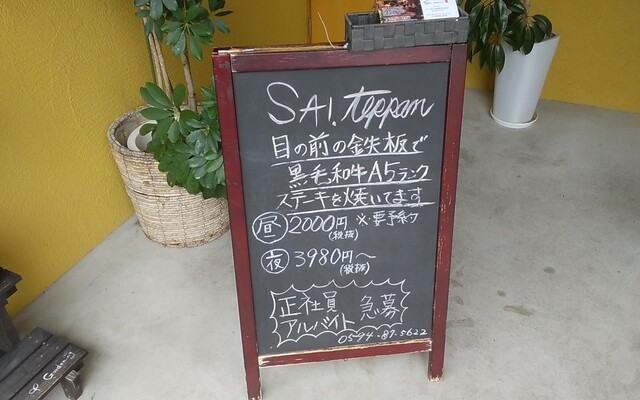 SAI. teppan
目の前の鉄板で
黒毛和牛A5ランク
ステーキを焼いてます
昼 2000円 ※要予約
(税抜)
夜 3980円〜
(税抜)
正社員 急募
アルバイト
0594-87-5622